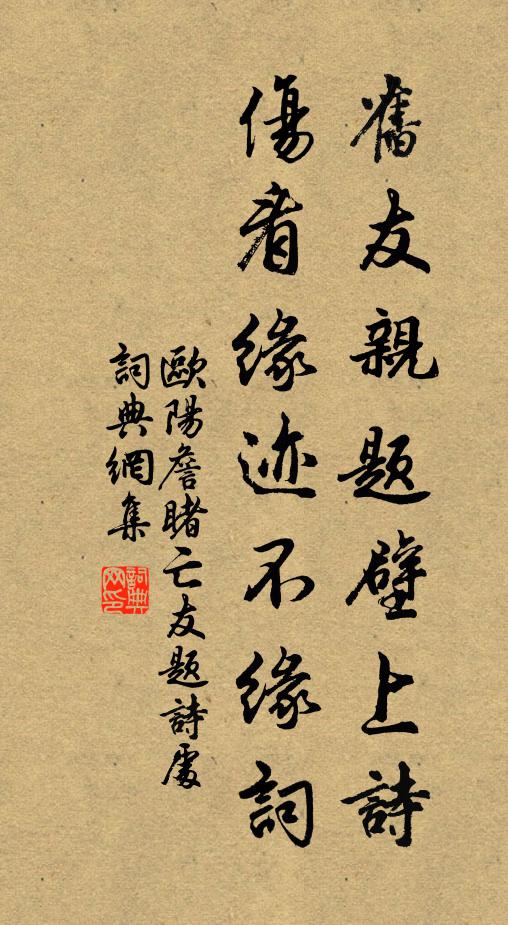 舊友親題壁上詩
傷看緣迹不緣詞
歐陽詹睹亡友題詩處
詞典網集
詞典网印